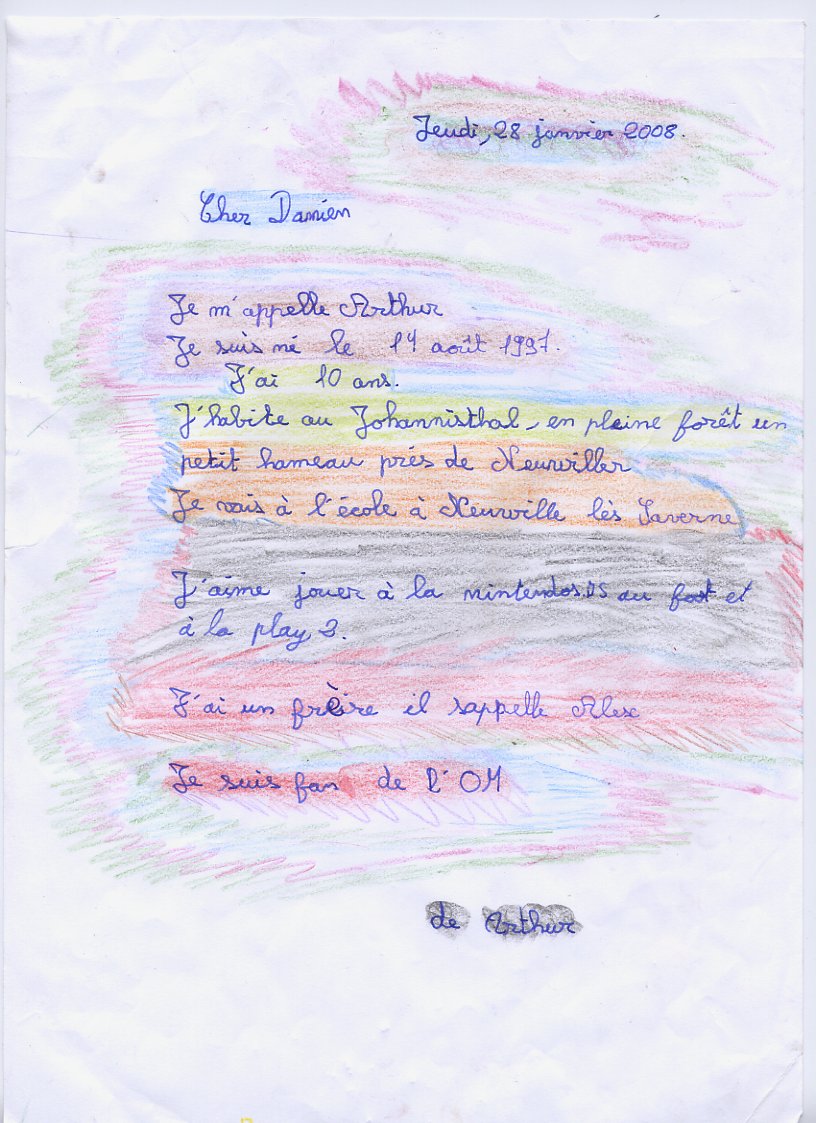 Jeudi, 28 janvier 2008.
Cher Damien
Je m'appelle Arthur
Je suis né le 14 août 1997.
J'ai 10 ans.
J'habite au Johannisthal, en pleine forêt un
petit hameau près de Neuwiller
Je vais à l'école à Neuwille lès Saverne
J'aime jouer à la nintendos DS au foot et
à la play 2.
J'ai un frère il sappelle Alex
Je suis fan de l'OM
de Arthur